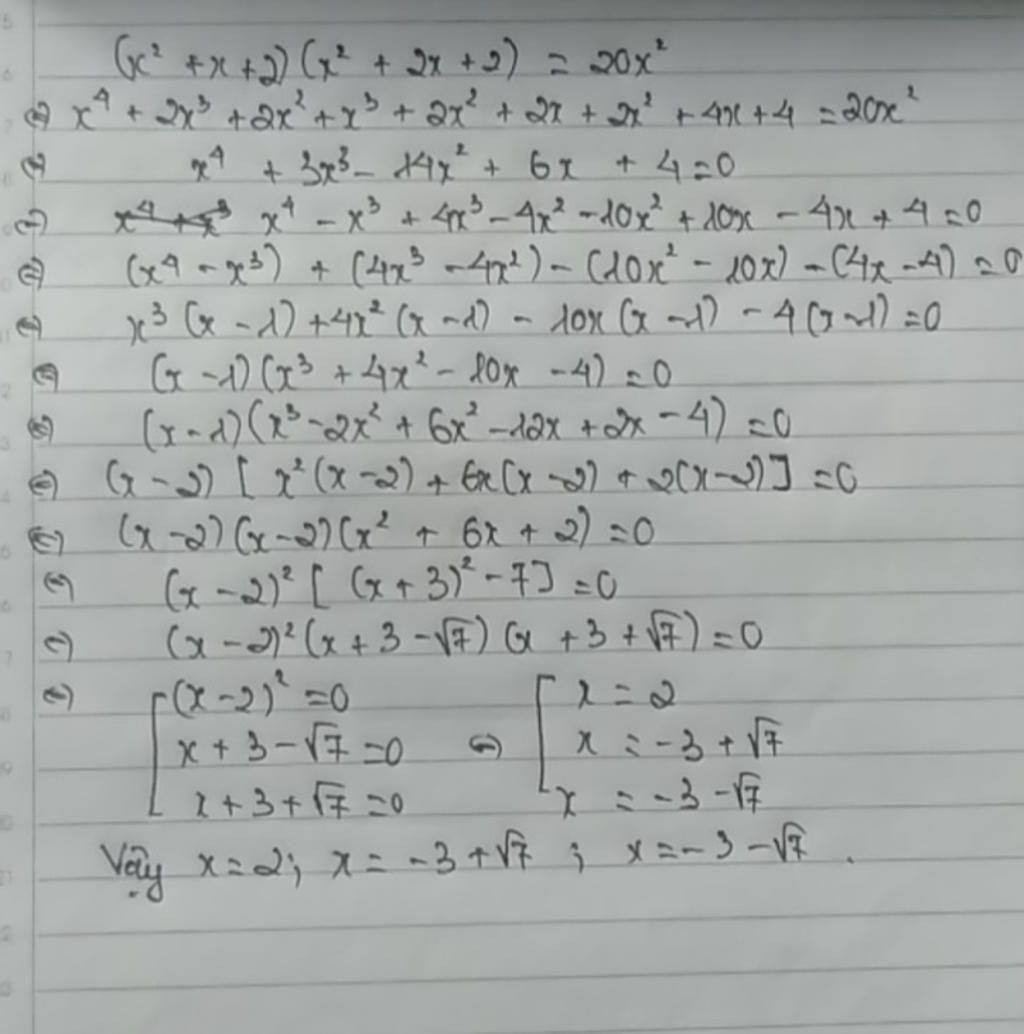 (x² + x + 2)(x² + 2x + 2) = 20x²
⇔ x⁴ + 2x³ + 2x² + x³ + 2x² + 2x + 2x² + 4x + 4 = 20x²
⇔ x⁴ + 3x³ - 14x² + 6x + 4 = 0
⇔ x⁴ - x³ + 4x³ - 4x² - 10x² + 10x - 4x + 4 = 0
⇔ (x⁴ - x³) + (4x³ - 4x²) - (10x² - 10x) - (4x - 4) = 0
⇔ x³(x - 1) + 4x²(x - 1) - 10x(x - 1) - 4(x - 1) = 0
⇔ (x - 1)(x³ + 4x² - 10x - 4) = 0
⇔ (x - 1)(x³ - 2x² + 6x² - 12x + 2x - 4) = 0
⇔ (x - 2)[x²(x - 2) + 6x(x - 2) + 2(x - 2)] = 0
⇔ (x - 2)(x - 2)(x² + 6x + 2) = 0
⇔ (x - 2)²[(x + 3)² - 7] = 0
⇔ (x - 2)²(x + 3 - √7)(x + 3 + √7) = 0
⇔ [(x - 2)² = 0 [x = 2
x + 3 - √7 = 0 ⇔ x = -3 + √7
x + 3 + √7 = 0 x = -3 - √7
Vậy x = 2; x = -3 + √7 ; x = -3 - √7 .